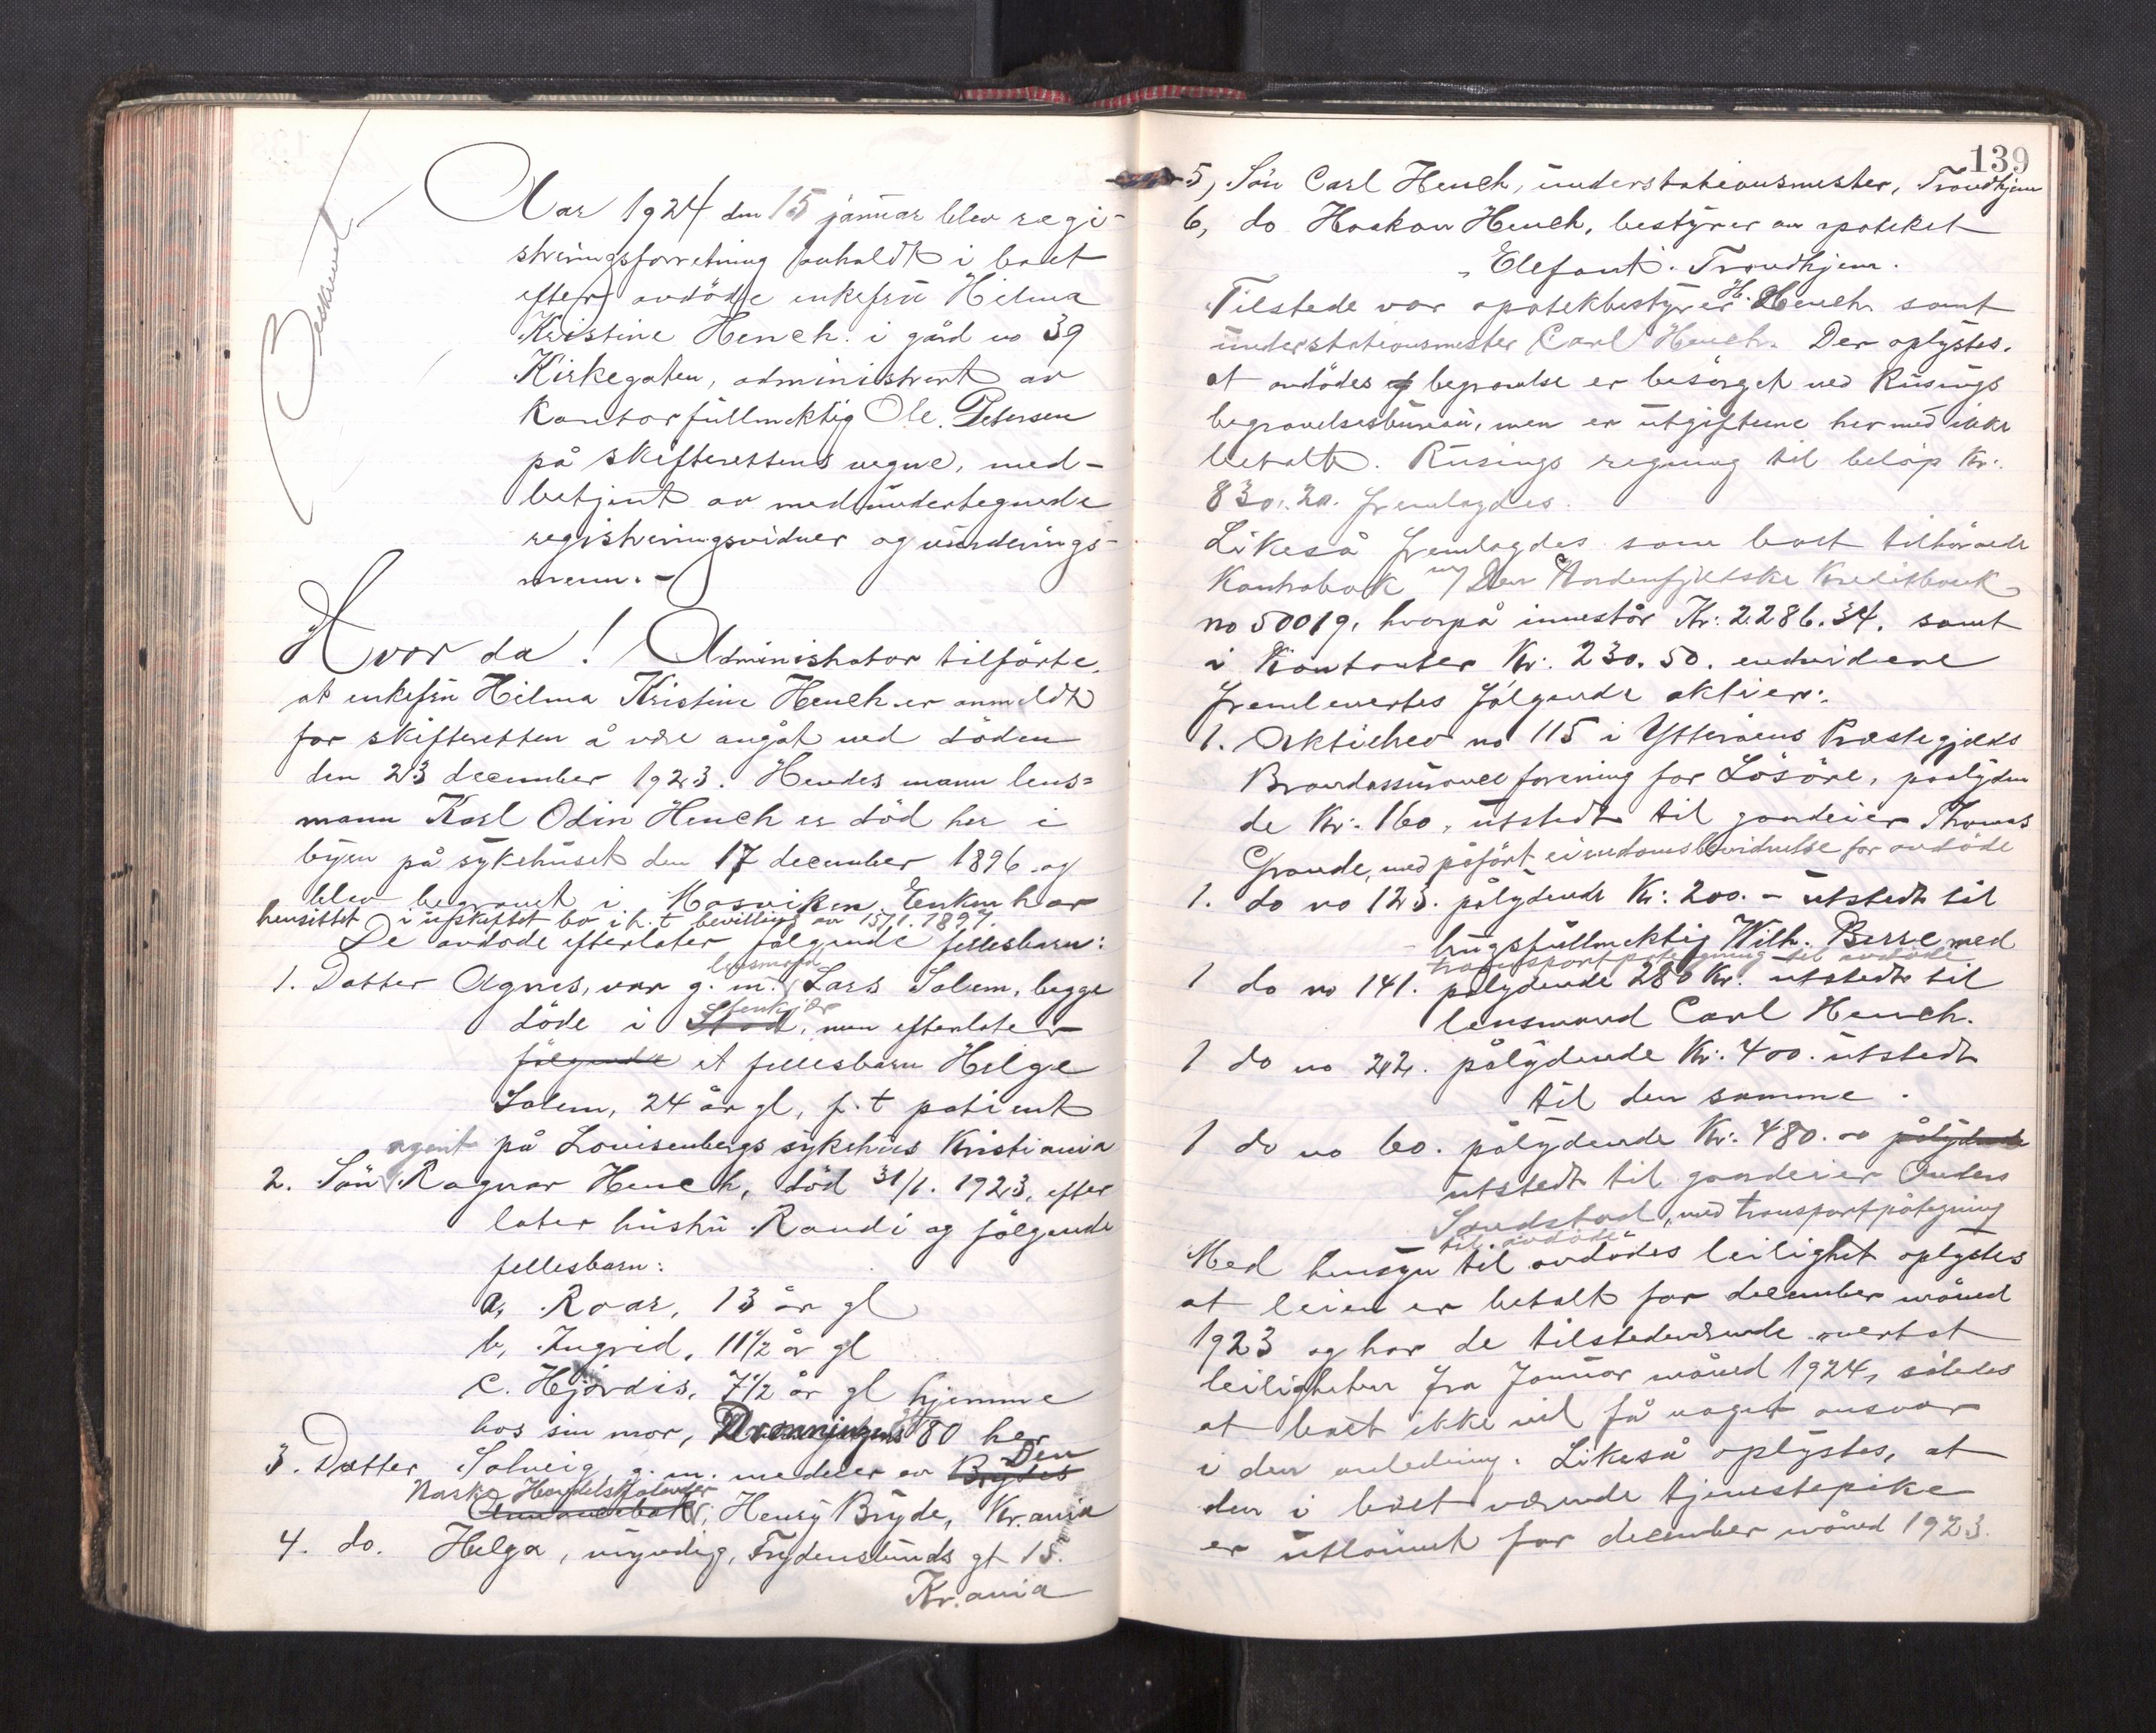 Beskrevet
Aar 1924 den 15 januar blev regi-
streringsforretning avholdt i boet
efter avdöde enkefru Hilma
Kristine Hench i gård no 39
Kirkegaten, administrert av
Kontorfullmektig Ole Petersen
på skifterettens vegne, med-
betjent av medundertegnede
registreringsvidner og vurderings-
menn.-
Hvor da! Administrator tilförte,
at enkefru Hilma Kristine Hench er anmeldt
for skifteretten å være avgåt ved döden
den 23 december 1923. Hendes mann lens=
mann Karl Odin Hench er död her i
byen på sykehuset den 17 december 1896 og
blev begravet i Mosviken. Enken har
hensittet i uskiftet bo i h.t bevilling av 15/1. 1897.
De avdode efterlater fölgende fellesbarn:
1. Datter Agnes, var g. m. lensmann Lars Solem, begge
döde i Stod Stenkjær, men efterlater
fölgende et fellesbarn Helge
Solem, 24 år gl, p.t patient
på Lovisenbergs sykehus Kristiania
2. Sön agent Ragnar Hench, död 31/1. 1923, efter
later hustru Randi og fölgende
fellesbarn:
a, Roar, 13 år gl
b, Ingrid, 11 1/2 år gl
c. Hjördis, 7 1/2 år gl hjemme
hos sin mor, Dronningens gt 80 her
3. Datter Solveig, g. m. medeier av Brydes Den
Norske Handelskalender
Annoncebok, Henry Bryde, Kr.ania
4. do. Helga, myndig, Frydenlunds gt 15.
Kr.ania
139
5, Sön Carl Hench, understationsmester, Trondhjem
6, do Haakon Hench, bestyrer av apoteket
„Elefant". Trondhjem.
Tilstede var apotekbestyrer H. Hench samt
understationsmester Carl Hench. Der oplystes,
at avdödes begravelse er besörget ved Rusings
begravelsesbureau, men er utgifterne hermed ikke
betalt. Rusings regning til belöp kr:
830.20. fremlagdes.
Likeså fremlagdes som boet tilhörende
Kontrabok m/ Den Nordenfjeldske Kreditbank
no 50019, hvorpå innestår Kr: 2.286.34. samt
i Kontanter Kr: 230.50. endvidere
fremlevertes fölgende aktier:
1. Aktiebrev no 115 i Ytteröens Præstegjelds
Brandassuranceforening for Lösöre, paalyden
de Kr: 160, utstedt til gaardeier Thomas
Grande, med påfört eiendomsbevidnelse for avdöde
1. do no 123. pålydende Kr: 200.- utstedt til
brugsfullmektig Wilh. Berre med
transportpåtegning til avdöde
1 do no 141. pålydende 280 Kr. utstedt til
lensmand Carl Hench.
1 do no 242. pålydende Kr: 400. utstedt
til den samme.
1 do no 60. pålydende Kr: 480.00 pålydende
utstedt til gaardeier Anders
Sandstad, med transportpåtegning
til avdöde
Med hensyn til avdödes leilighet oplystes
at leien er betalt for december måned
1923 og har de tilstedeværende overtat
leiligheten fra Januar måned 1924, således
at boet ikke vil få noget ansvar
i den anledning. Likeså oplystes, at
den i boet værende tjenestepike
er utlönnet for december måned 1923.